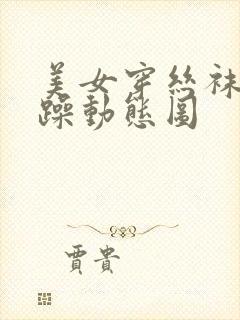 美女穿絲袜
躁動態圖
賈貴